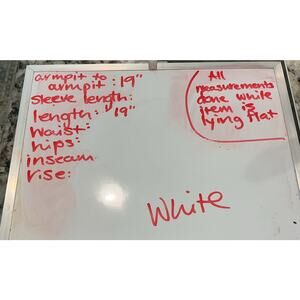 armpit to
armpit: 19"
sleeve length:
length: 19"
waist:
hips:
inseam
rise:
All
measurements
done while
item is
lying flat
White